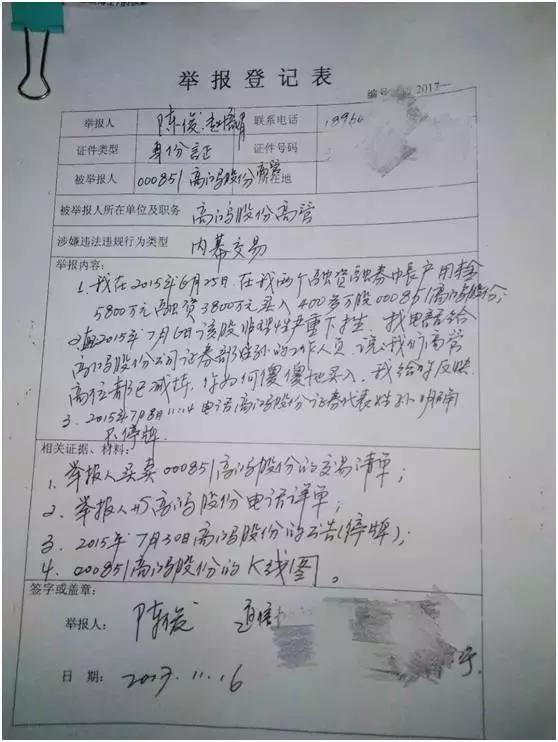 举报登记表
编号 2017-
举报人 陈俊、 联系电话 1896
证件类型 身份证 证件号码
被举报人 000851高鸿股份 所在地
被举报人所在单位及职务 高鸿股份高管
涉嫌违法违规行为类型 内幕交易
举报内容:
1、我在2015年6月25日,在我两个融资融券中长户用本金
5800万元融资3800万元买入400多万股000851高鸿股份;
2、2015年7月6日该股非理性严重下挫,我电话给
高鸿股份公司证券部姓孙的工作人员,说:我们高管
高位都已减持,你如何傻傻地买入,我给你反映.
3、2015年7月8日11:14电话高鸿股份证券代表姓孙明确
不停牌.
相关证据、材料:
1、举报人买卖000851高鸿股份的交易清单;
2、举报人与高鸿股份电话详单;
3、2015年7月30日高鸿股份的公告(停牌);
4、000851高鸿股份的K线图。
签字或盖章:
举报人: 陈俊
日 期: 2017.11.16